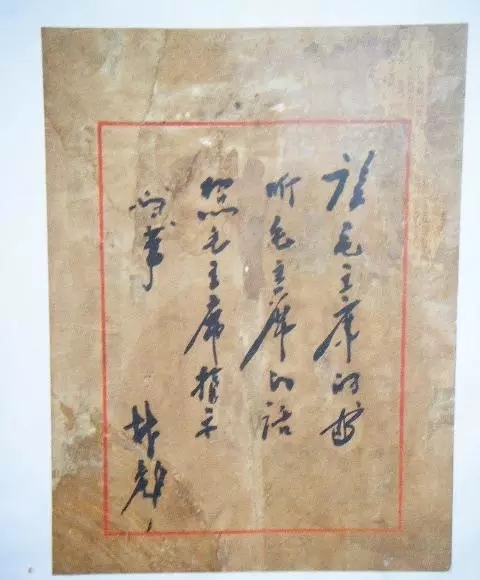 读毛主席的书
听毛主席的话
照毛主席指示
办事
林彪